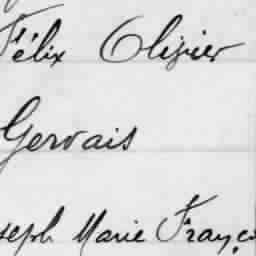 Félix Olivier
Gervais
seph Marie Franço